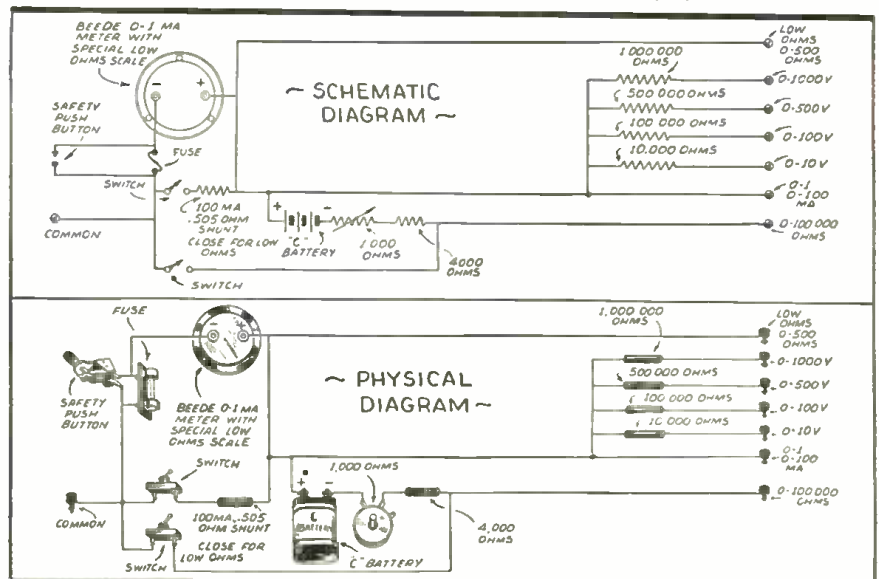 BEEDE 0-1 MA
METER WITH
SPECIAL LOW
OHMS SCALE
SAFETY
PUSH
BUTTON
FUSE
SWITCH
COMMON
100 MA
.505 OHM
SHUNT
CLOSE FOR LOW
OHMS
SWITCH
~ SCHEMATIC
DIAGRAM ~
+
-
"C"
BATTERY
1000
OHMS
4000
OHMS
1000 000
OHMS
500 000 OHMS
100 000 OHMS
10,000 OHMS
LOW
OHMS
0-500
OHMS
0-1000V
0-500V
0-100V
0-10V
0-1
0-100
MA
0-100 000
OHMS
FUSE
SAFETY
PUSH
BUTTON
BEEDE 0-1 MA
METER WITH
SPECIAL LOW
OHMS SCALE
SWITCH
COMMON
100MA, .505
OHM SHUNT
CLOSE FOR
LOW OHMS
SWITCH
~ PHYSICAL
DIAGRAM ~
+ -
C
BATTERY
"C" BATTERY
1,000 OHMS
4,000
OHMS
1,000 000
OHMS
500 000 OHMS
100 000 OHMS
10 000 OHMS
LOW
OHMS
0-500
OHMS
0-1000V
0-500V
0-100V
0-10V
0-1
0-100
MA
0-100 000
OHMS